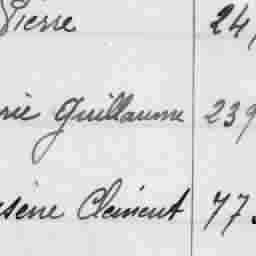 Pierre 24
rie Guillaume 239
sène Clément 77